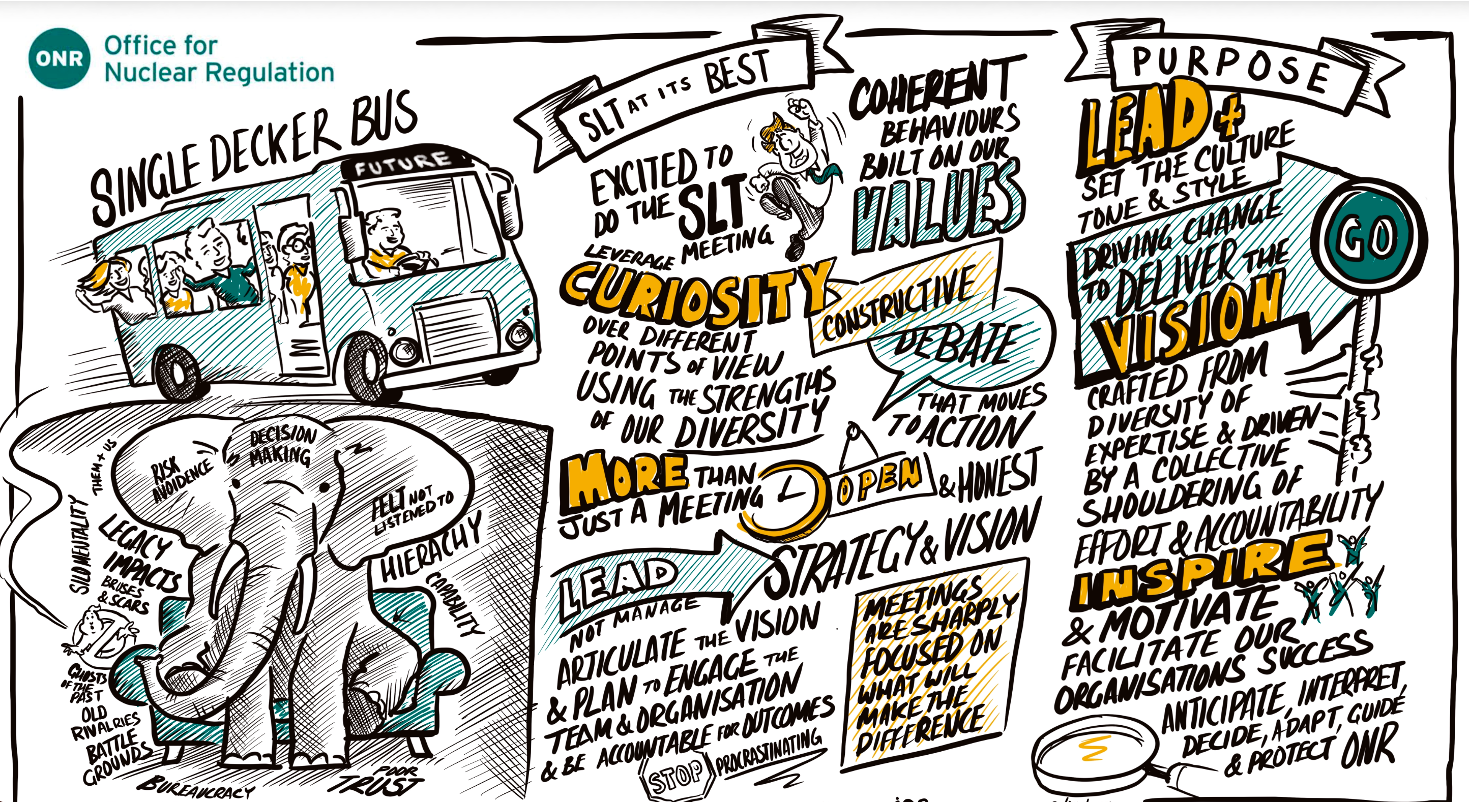 ONR
Office for
Nuclear Regulation
SINGLE DECKER BUS
FUTURE
DECISION
MAKING
RISK
AVOIDENCE
FELT NOT
LISTENED TO
THEM + US
SILO MENTALITY
LEGACY
IMPACTS
BRISES
& SCARS
HIERACHY
CAPABILITY
GHOSTS
OF THE
PAST
OLD
RIVALRIES
BATTLE
GROUNDS
BUREAUCRACY
POOR
TRUST
SLT AT ITS BEST
EXCITED TO
DO THE SLT
MEETING
LEVERAGE
CURIOSITY
OVER DIFFERENT
POINTS OF VIEW
USING THE STRENGTHS
OF OUR DIVERSITY
COHERENT
BEHAVIOURS
BUILT ON OUR
VALUES
CONSTRUCTIVE
DEBATE
THAT MOVES
TO ACTION
MORE THAN
JUST A MEETING
OPEN & HONEST
LEAD
NOT MANAGE
STRATEGY & VISION
ARTICULATE THE VISION
& PLAN TO ENGAGE THE
TEAM & ORGANISATION
& BE ACCOUNTABLE FOR OUTCOMES
STOP PROCRASTINATING
MEETINGS
ARE SHARPLY
FOCUSED ON
WHAT WILL
MAKE THE
DIFFERENCE
PURPOSE
LEAD +
SET THE CULTURE
TONE & STYLE
DRIVING CHANGE
TO DELIVER THE
VISION
GO
CRAFTED FROM
DIVERSITY OF
EXPERTISE & DRIVEN
BY A COLLECTIVE
SHOULDERING OF
EFFORT & ACCOUNTABILITY
INSPIRE
& MOTIVATE
FACILITATE OUR
ORGANISATIONS SUCCESS
ANTICIPATE, INTERPRET,
DECIDE, ADAPT, GUIDE
& PROTECT ONR